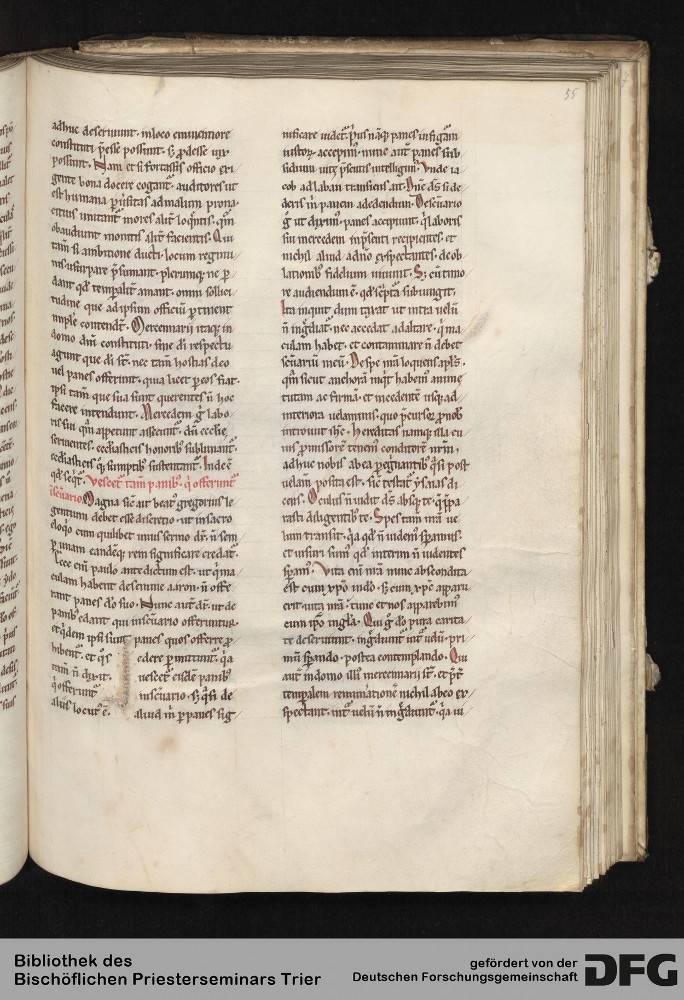 55
adhuc deseruiunt. in loco eminentiore
constituti p̄esse possunt. sꝫ ꝓdesse uix
possunt. Nam et si fortassis officio exi
gente bona docere cogant᷑. auditores ut
est humana ad malum prona
citius imitant᷑ mores alit᷑ loq̄ntis. q̄m
obaudiunt monitis alit᷑ facientis. Qui
tam̄ si ambitione ducti. locum regimi
nis usurpare p̄sumant. plerumq; ne ꝑ
dant qd̓ temporalit᷑ amant. omni sollici
tudine que ad ipsum officiū ꝑtinent
implere contendt̄. Mercennarii itaq; in
domo dn̄i constituti. sine di respectu
agunt que di st̄. nec tam̄ hostias deo
uel panes offerunt. quia licet ꝑ eos fiat.
ipsi tam̄ que sua sunt querentes n̄ hoc
facere intendunt. Mercedem g̊ labo
ris sui quā appetunt assecunt᷑. dū eccl̄ie
seruientes. eccl̄iasticis honorib; sublimant᷑.
eccl̄iasticis q; sumptib; sustentant᷑. Inde ē
qd̓ seq̄t᷑. Vescent᷑ tam̄ panib; q̇ offerunt᷑
Magna sic̄ ait beat᷑ gregorius le
gentium debet esse discretio. ut in sacro
eloq̇o cum quilibet unus sermo dr̄. n̄ sem
ꝑ unam eandēq; rem significare credat᷑.
Ecce eni paulo ante dictum est. ut q̇ ma
culam habent de semine aaron. n̄ offe
rant panes dō suo. Nunc aut̄ dr̄. ut de
panib; edant qui in sc̄uario offeruntur.
et q̇dem ipsi sunt panes quos offerre ꝓ
hibent᷑. et q̇s edere ꝑmittunt᷑. q̇a
tam̄ n̄ dixit. uescent᷑ eisdē panib;
q̇ offerunt᷑ in sc̄uario. sꝫ q̇si de
aliis locut᷑ ē. aliud in ꝑ panes sig
nificare uidet᷑. p̄us nāq; panes
iustoꝝ accepim᷑. nunc aut̄ panes sub
sidium uitę p̄sentis intelligim᷑. Vnde ia
cob ad laban transiens ait. Nūc ds̄ si de
derit m̄ panem ad edendum. De sc̄uario
g̊ ut diximus. panes accipiunt. q̇ laboris
sui mercedem in p̄senti recipientes. et
nichil aliud a dn̄o expectantes. de ob
lationib; fidelium uiuunt. Sꝫ cū timo
re audiendum ē. qd̓ sc̄ptᷓ subiungit.
Ita inquit. dum taxat ut intra uelū
n̄ ingrediat᷑. nec accedat ad altare. q̇a ma
culam habet. et contaminare n̄ debet
sc̄uariū meū. De spe mā loquens apl̄s.
qm̄ sicut anchorā inq̇t habem᷑ anime
tutam ac firmā. et incedentē usq; ad
interiora uelaminis. quo p̄cursor ꝓ nob̄
introiuit ih̄c. Hereditas namq; illa cu
ius ꝓmissorē tenem᷑ conditorē nr̄m.
adhuc nobis ab ea peg̊nantib; q̇si post
uelam posita est. sic̄ testat᷑ ysaias di
cens. Oculus n̄ uidit ds̄ absq; te. q̇ p̄pa
rasti diligentib; te. Spes tam̄ mā ue
lum transit. q̇a qd̓ n̄ uidem᷑ speramus.
et uisuri sum᷑. qd̓ interim n̄ uidentes
speram᷑. Vita eni mā nunc abscondita
est cum xpō in dō. sꝫ cum xp̄c apparu
erit uita mā. tunc et nos apparebim᷑
cum ipō in gl̄a. Qui g̊ dō pura carita
te deseruiunt. ingrediunt᷑ intᷓ uelū. pri
mū sperando. postea contemplando. Qui
aut̄ in domo illi᷑ mercennarii st̄. et p̄t̄
temporalem remunerationē nichil ab eo ex
spectant. intᷓ uelū n̄ ingrediunt᷑. q̇a ui
Bibliothek des
Bischöflichen Priesterseminars Trier
gefördert von der
Deutschen Forschungsgemeinschaft
DFG